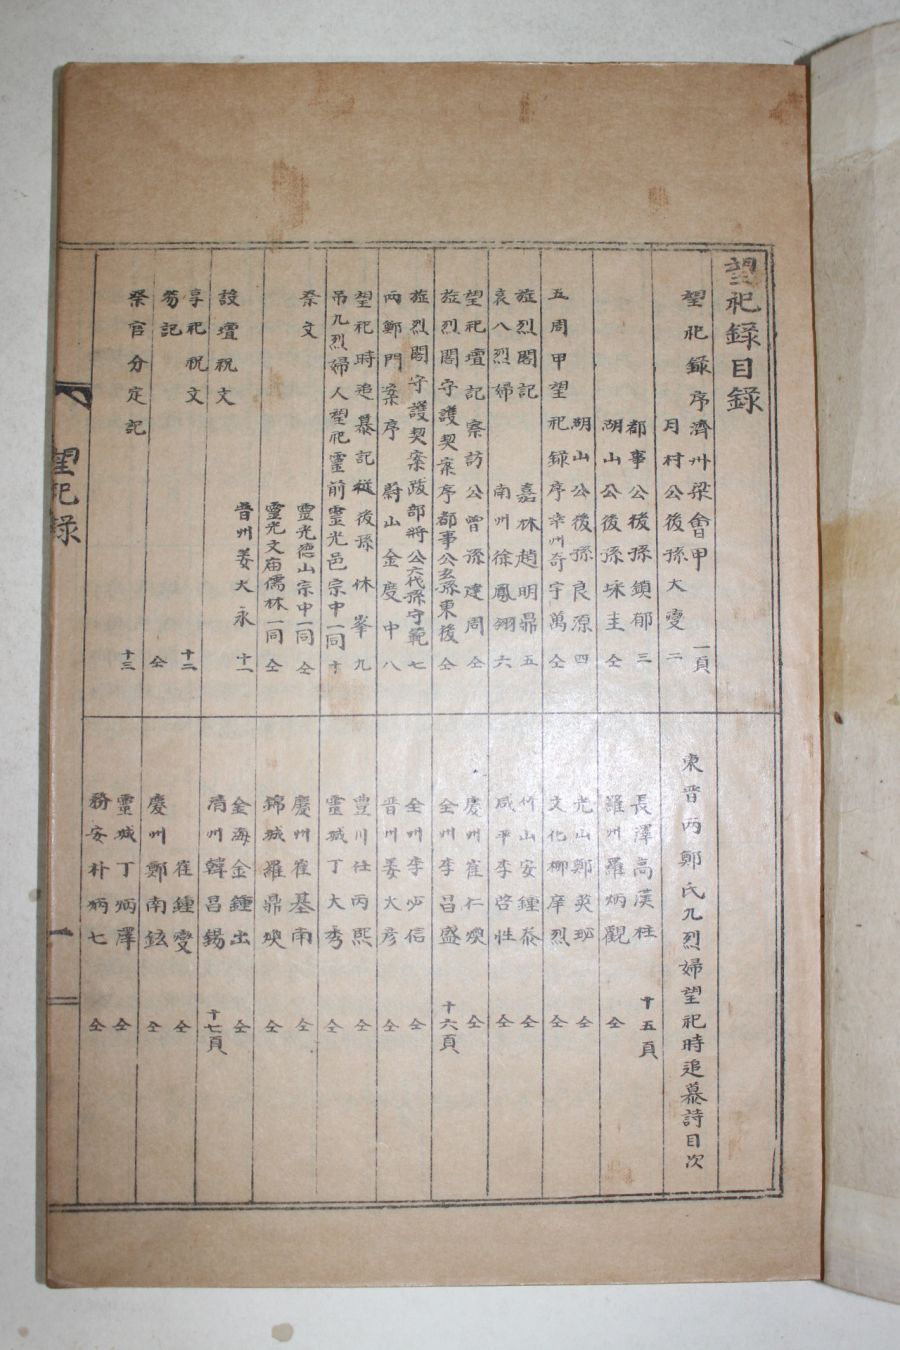 望祀錄目錄
望祀錄序 濟州梁會甲 一頁
月村公後孫大燮 二
都事公後孫鎮郁 三
湖山公後孫琜圭 仝
湖山公後孫良源 四
五周甲望祀錄序 幸州奇宇萬 仝
旌烈閣記 嘉林趙明鼎 五
哀八烈婦 南州徐鳳翎 六
望祀壇記 察訪公曾孫建周 仝
旌烈閣守護契案序 都事公玄孫東後 仝
旌烈閣守護契案跋 部將公六代孫守範 七
丙鄭門案序 蔚山金慶中 八
望祀時追慕記 從後孫休峯 九
吊九烈婦人望祀靈前 靈光邑宗中一同 十
祭文 靈光德山宗中一同 仝
靈光文廟儒林一同 仝
晉州姜大永 十一
設壇祝文
享祀祝文 十二
笏記 仝
祭官分定記 十三
東晋丙鄭氏九烈婦望祀時追慕詩目次
長澤高漢柱 十五頁
羅州羅炳觀 仝
光山鄭英珌 仝
文化柳庠烈 仝
竹山安鍾泰 仝
咸平李啓性 仝
慶州崔仁煥 仝
全州李昌盛 十六頁
全州李必信 仝
晋州姜大彦 仝
豊川任丙熙 仝
靈城丁大秀 仝
慶州崔基南 仝
錦城羅鼎煥 仝
金海金鍾出 仝
清州韓昌錫 十七頁
崔鍾燮 仝
慶州鄭南鉉 仝
靈城丁炳澤 仝
務安朴炳七 仝
望祀錄
一